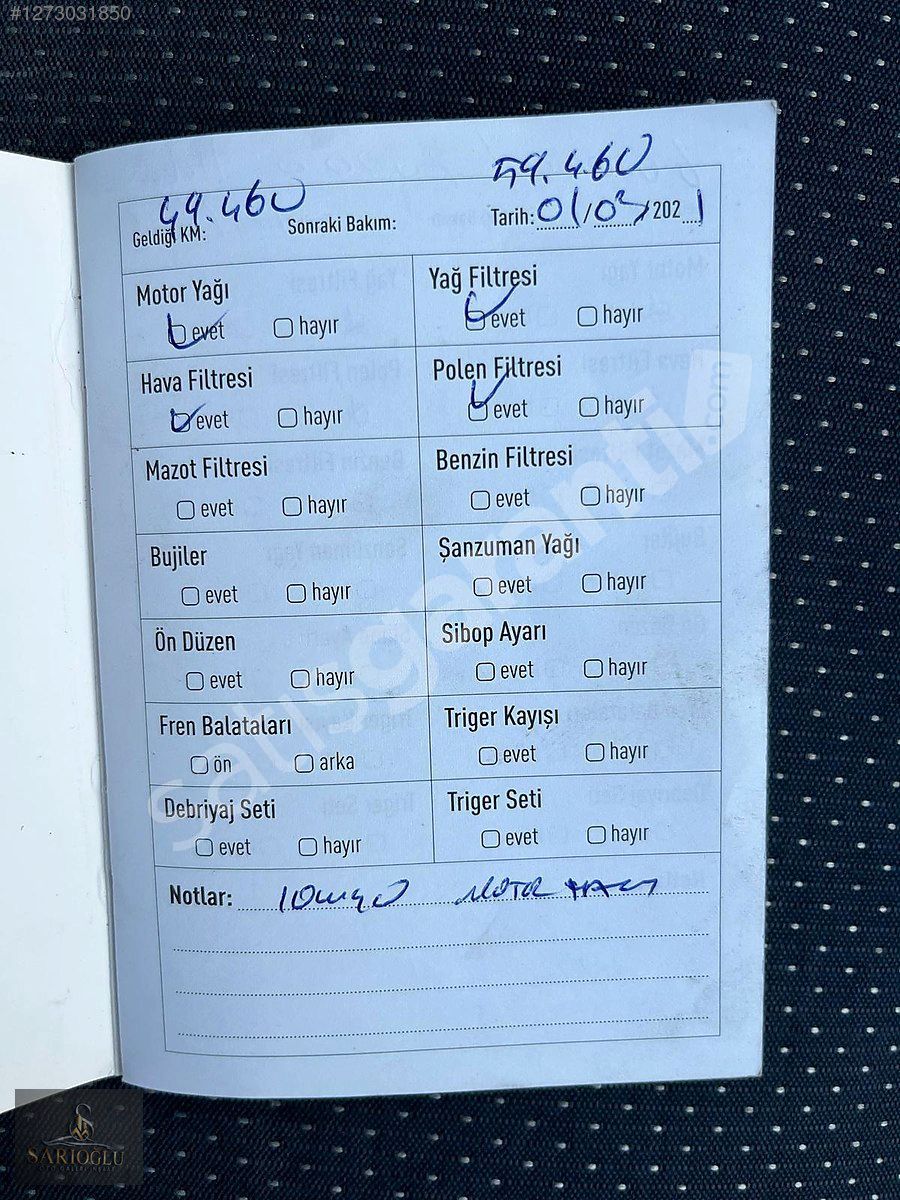 #1273031850
49.460 59.460
Geldiği KM: Sonraki Bakım: Tarih: 01/03/2021
Motor Yağı Yağ Filtresi
evet hayır evet hayır
Hava Filtresi Polen Filtresi
evet hayır evet hayır
Mazot Filtresi Benzin Filtresi
evet hayır evet hayır
Bujiler Şanzuman Yağı
evet hayır evet hayır
Ön Düzen Sibop Ayarı
evet hayır evet hayır
Fren Balataları Triger Kayışı
ön arka evet hayır
Debriyaj Seti Triger Seti
evet hayır evet hayır
Notlar: 10w40 MOTOR YAĞI
satisgaranti.com
SARIOĞLU